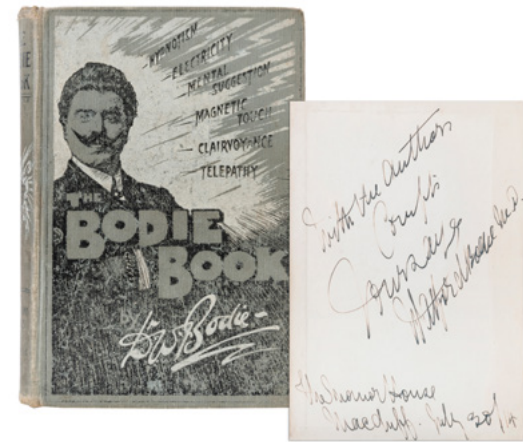 HYPNOTISM
ELECTRICITY
MENTAL
SUGGESTION
MAGNETIC
TOUCH
CLAIRVOYANCE
TELEPATHY
THE
BODIE
BOOK
by
Dr W. Bodie
With the Authors
Compts
Yours
Walford Bodie M.D
The Manor House
Macduff. July 20/14